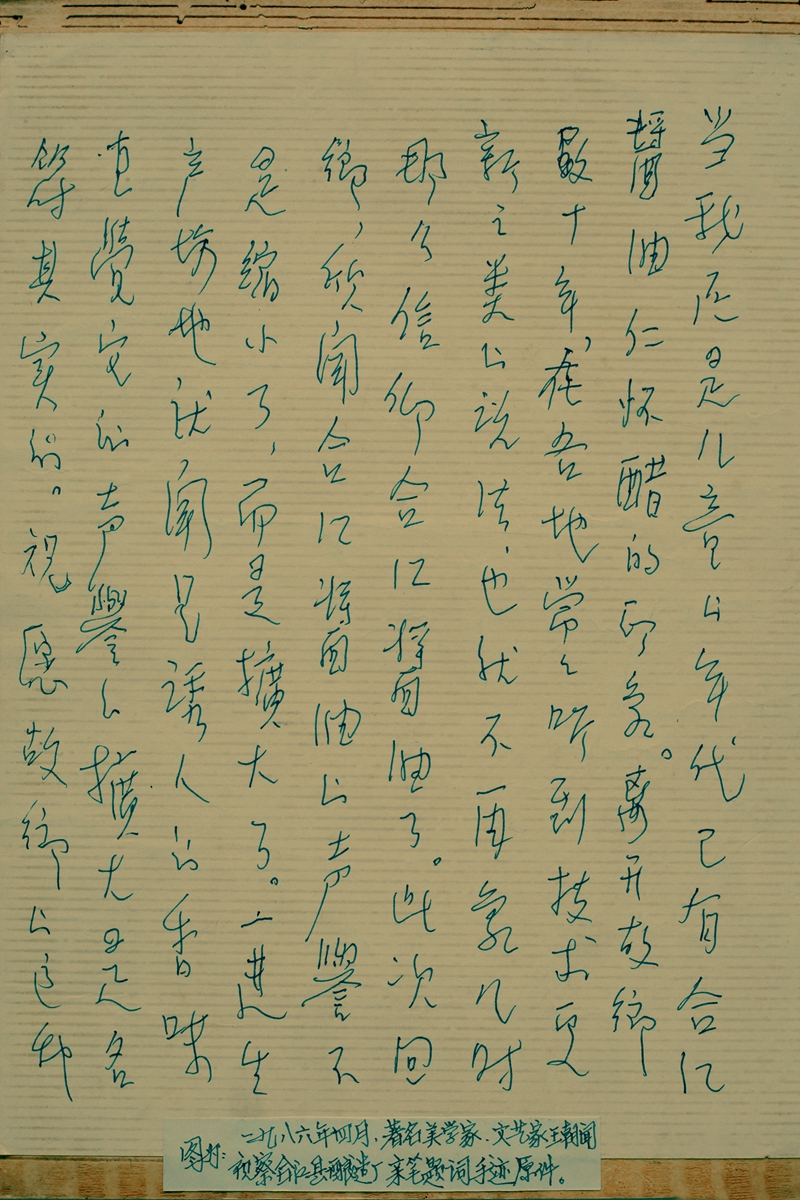 当我还是儿童的年代已有合江
醬油仁怀醋的印象。离开故鄉
數十年,在各地常々听到技术更
新之类的説法,也就不再象儿时
那么信仰合江醬油了。此次回
鄉,欣聞合江醬油的声譽不
是縮小了,而是擴大了。一進生
产場地,就聞見诱人的香味
直覺它的声譽的擴大是名
符其实的。祝愿故鄉的这种
一九八六年四月,著名美学家、文艺家王朝闻
视察合江县酿造厂亲笔题词手迹原件。